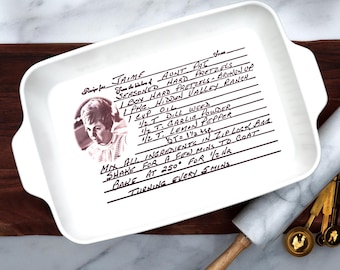 Recipe for JAIME AUNT
From
SEASONED HARD PRETZELS
1 BOX HARD PRETZELS -
1 PKG HIDDEN VALLEY RANCH
1 CUP OIL
1/2 T. DILL WEED
1/2 T. GARLIC POWDER
1/2 T. LEMON PEPPER
MIX ALL INGREDIENTS IN ZIP LOCK BAG
SHAKE FOR A FEW MINS TO COAT
BAKE AT 250° FOR 1/2 HR
TURNING EVERY 5 MINS